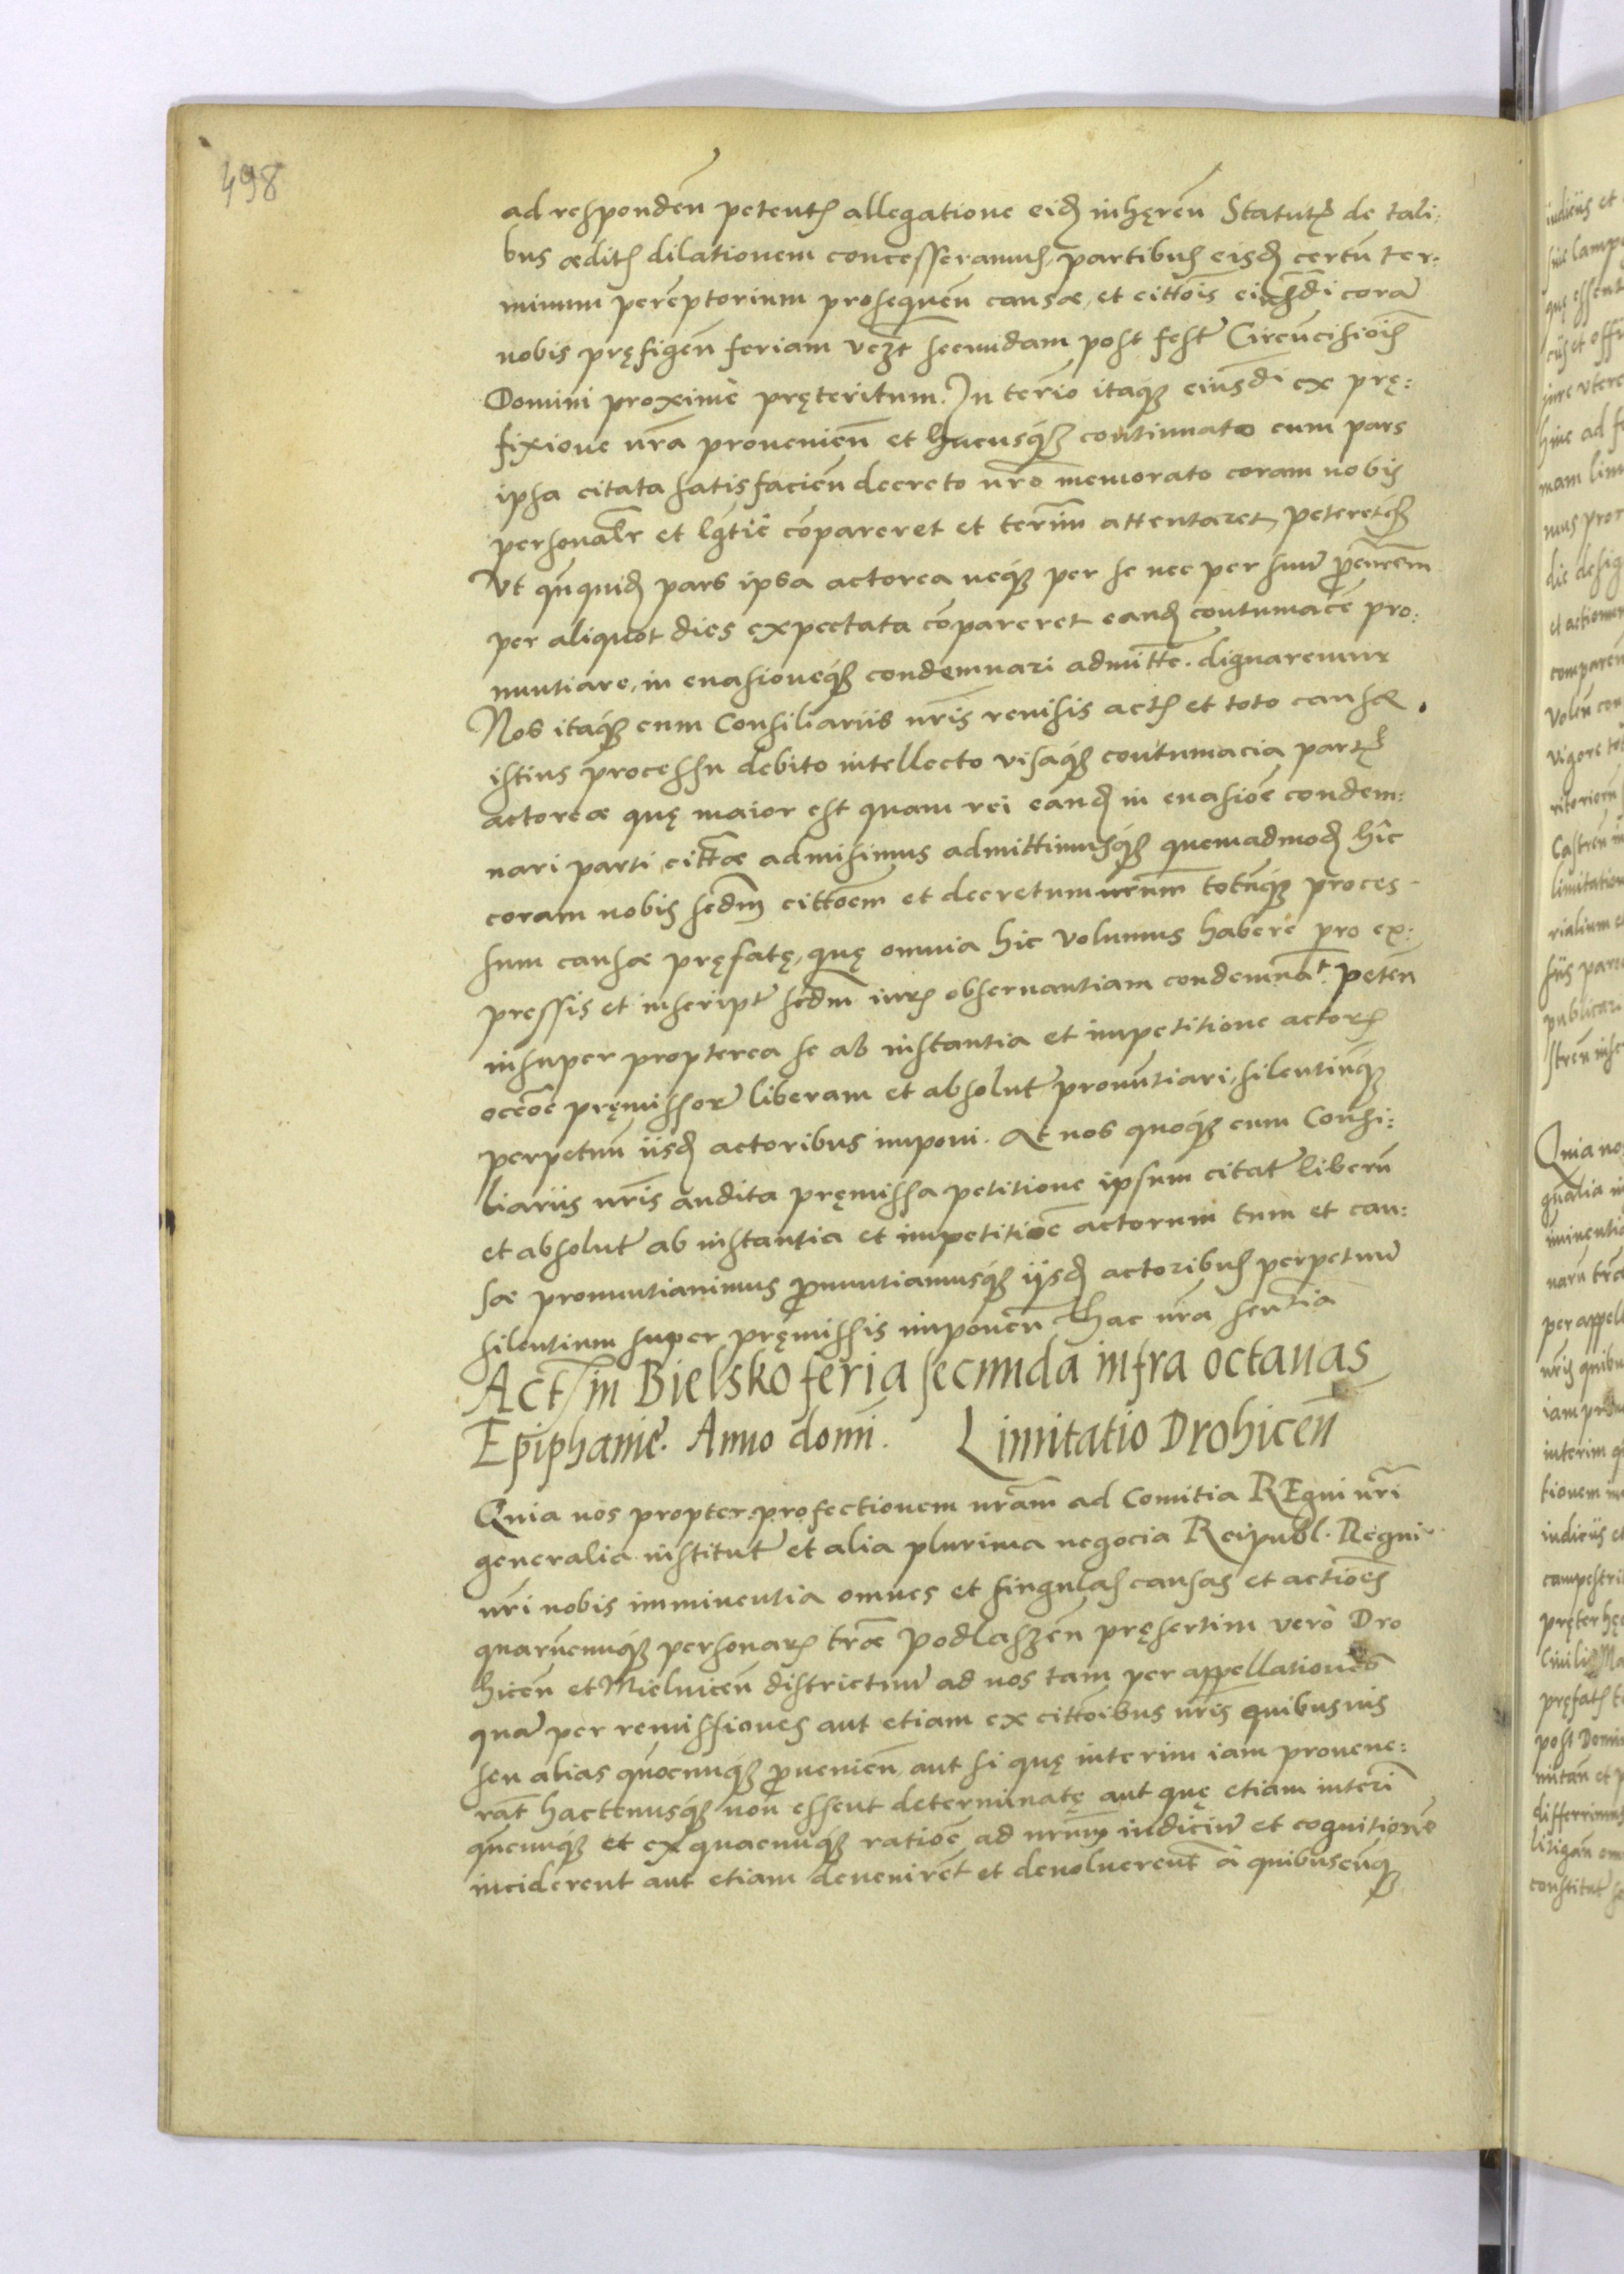 498
ad responden̄ petentꝭ allegatione eid inhęren̄ Statutꝭ de tali:
bus æditꝭ dilationem concesseramus, partibus eisd certū ter:
minum perēptorium prosequen̄ causæ, et cittōis eiusdī corā
nobis pręfigen̄ feriam vezt secundam post festū Circūcisiōis
Domini proximè pręteritum. In terīo itaqȝ eiusdī ex prę:
fixione nrā prouenien̄ et hucusqȝ continuato cum pars
ipsa citata satisfacien̄ decreto nrō memorato coram nobis
personalr et lgtiē cōpareret et terīm attentaret, petereteqȝ
Vt qn̄quid pars ipsa actorea neqȝ per se nec per suū procurem
per aliquot dies expectata cōpareret eand contumacē pro:
nuntiare, in euasioneqȝ condemnari admitte. dignaremur
Nos itaqȝ cum Consiliariis nrīs reuisis actꝭ et toto causæ.
istius processu debito intellecto visaqȝ contumacia partꝭ
actoreæ quę maior est quam rei eand in euasiōe condem:
nari parti cittæ admisimus admittimusqȝ quemadmod hîc
coram nobis scdm cittōem et decretum nrūm totūqȝ proces
sum causæ pręfatę, quę omnia hic volumus habere pro ex:
pressis et inscriptꝭ scdm iurꝭ obseruantiam condemnat. peten̄
insuper propterea se ab instantia et impetitione actorꝭ
occōe pręmissorꝭ liberam et absolutꝭ pronūtiari, silentiūqȝ
perpetuū iisd actoribus imponi. At nos quoqȝ cum Consi:
liariis nrīs audita pręmissa petitione ipsum citatū liberū
et absolutū ab instantia et impetitiōe actorum tum et cau:
sæ pronuntiauimus pnuntiamusqȝ ijsd actoribus perpetuū
silentium super pręmissis imponen̄ Hac nrā sentīa
Act in Bielsko feria secunda infra octauas
Epiphanię. Anno domī. Limitatio Drohicen̄
Quia nos propter profectionem nrām ad Comitia REgni nrī
generalia institutꝭ et alia plurima negocia Reipubl. Regni
nrī nobis imminentia omnes et singulas causas et actiōes
quarūcunqȝ personarꝭ træ Podlaszen̄ pręsertim verò Dro
hicen̄ et Mielnicen̄ districtuū ad nos tam per appellationes
quā per remissiones aut etiam ex cittōibus nrīs quibusuis
seu alias quōcunqȝ puenien̄, aut si quę interim iam prouene:
rāt hactenusqȝ non essent determinatę aut quę etiam interī
qn̄cunqȝ et ex quacunqȝ ratiōe ad nrūm iudiciū et cognitionē
inciderent aut etiam deuenirēt et deuoluerent à quibuscūqȝ